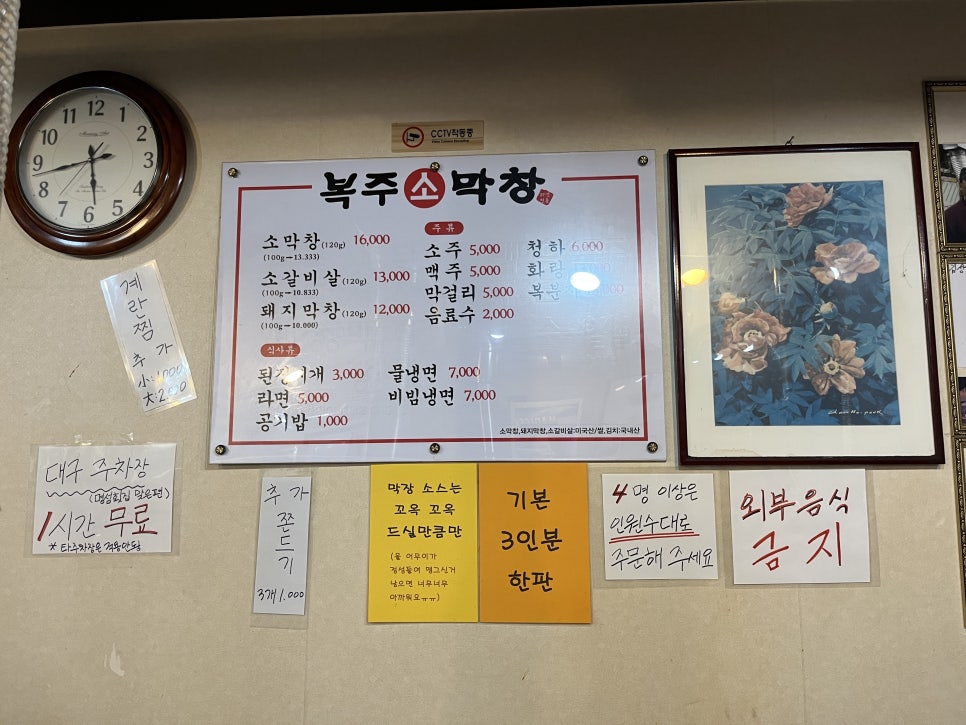 12
1
2
3
4
5
6
7
8
9
10
11
CCTV작동중
복주소막창
소막창(120g) 16,000
(100g→13.333)
소갈비살(120g) 13,000
(100g→10.833)
돼지막창(120g) 12,000
(100g→10.000)
주류
소주 5,000
맥주 5,000
막걸리 5,000
음료수 2,000
청하 6,000
화랑
식사류
된장찌개 3,000
라면 5,000
공기밥 1,000
물냉면 7,000
비빔냉면 7,000
소막창,돼지막창,소갈비살:미국산/쌀,김치:국내산
계란찜
추가
대구 주차장
(명성회집 맞은편)
1시간 무료
* 타주차장은 적용안됨
추가
쫀드기
3개 1.000
막장 소스는
꼬옥 꼬옥
드실만큼만
(울 어무이가
정성들여 맹그신거
남으면 너무너무
아까워요ㅠㅠ)
기본
3인분
한판
4명 이상은
인원수대로
주문해 주세요
외부음식
금지